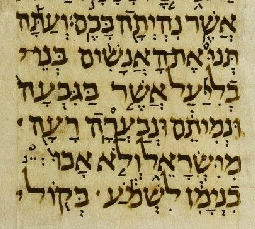 אֲשֶׁר נִהְיְתָה בָּכֶם׃ וְעַתָּה
תְּנוּ אֶת הָאֲנָשִׁים בְּנֵי
בְלִיַּעַל אֲשֶׁר בַּגִּבְעָה
וּנְמִיתֵם וּנְבַעֲרָה רָעָה
מִיִּשְׂרָאֵל וְלֹא אָבוּ
בִּנְיָמִן לִשְׁמֹעַ בְּקוֹל